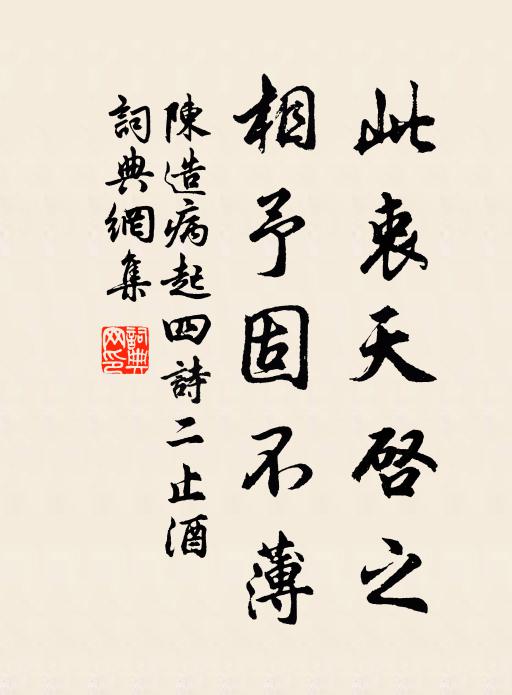 此衷天啓之
相予固不薄
陳造病起四詩二止酒
詞典網集
詞典網印